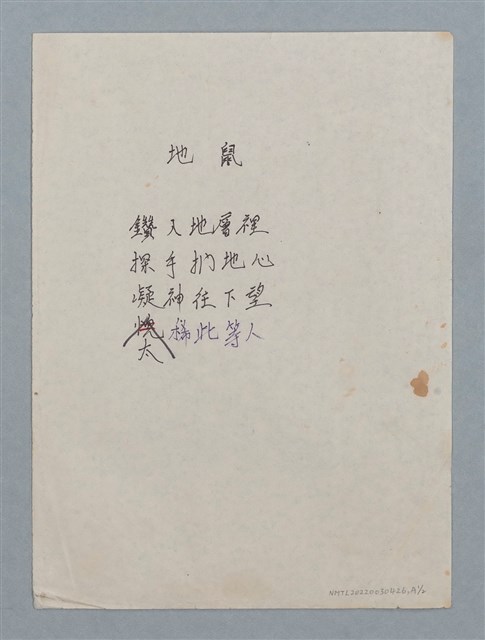 地鼠
鑽入地層裡
探手捫地心
凝神往下望
愧稱此等人
太
NMTL20220030426,A½